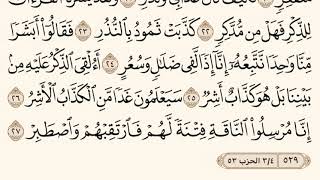 لِلذِّكْرِ فَهَلْ مِن مُّدَّكِرٍ ٢٢ كَذَّبَتْ ثَمُودُ بِالنُّذُرِ ٢٣ فَقَالُوٓا۟ أَبَشَرًا
مِّنَّا وَٰحِدًا نَّتَّبِعُهُۥٓ إِنَّآ إِذًا لَّفِى ضَلَٰلٍ وَسُعُرٍ ٢٤ أَءُلْقِىَ الذِّكْرُ عَلَيْهِ مِنۢ
بَيْنِنَا بَلْ هُوَ كَذَّابٌ أَشِرٌ ٢٥ سَيَعْلَمُونَ غَدًا مَّنِ الْكَذَّابُ الْأَشِرُ ٢٦
إِنَّا مُرْسِلُوا۟ النَّاقَةِ فِتْنَةً لَّهُمْ فَارْتَقِبْهُمْ وَاصْطَبِرْ ٢٧
٥٢٩ ٣/٤ الحزب ٥٣